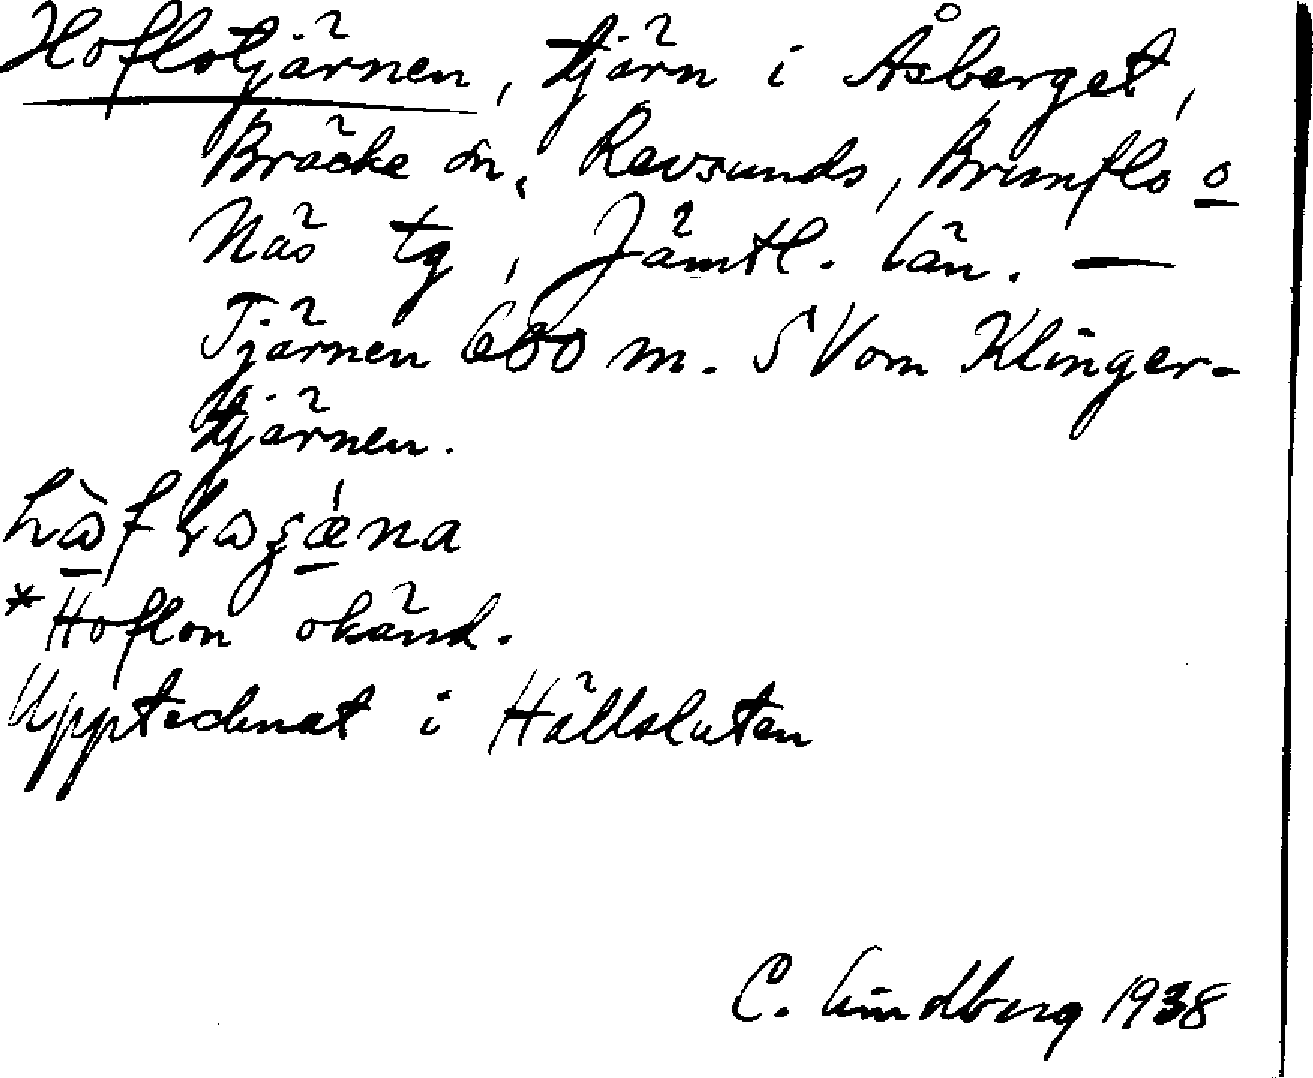 Hoflotjärnen, tjärn i Åsberget,
Bräcke sn, Revsunds, Brunflo o
Näs tg, Jämtl. län. —
Tjärnen 600 m. SV om Klinger-
tjärnen.
*Hoflon okänd.
Upptecknat i Hällsluten
C. Lindberg 1938